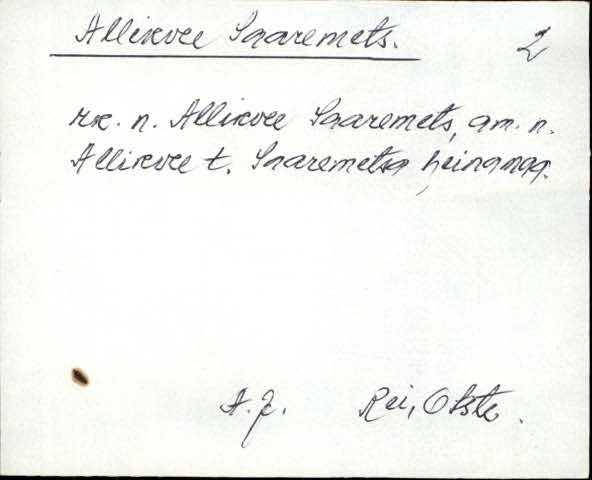 Allikvee Saaremets. 2
rk. n. Allikvee Saaremets, am. n.
Allikvee t. Saaremetsa heinamaa.
A. J. Rei, Otste.